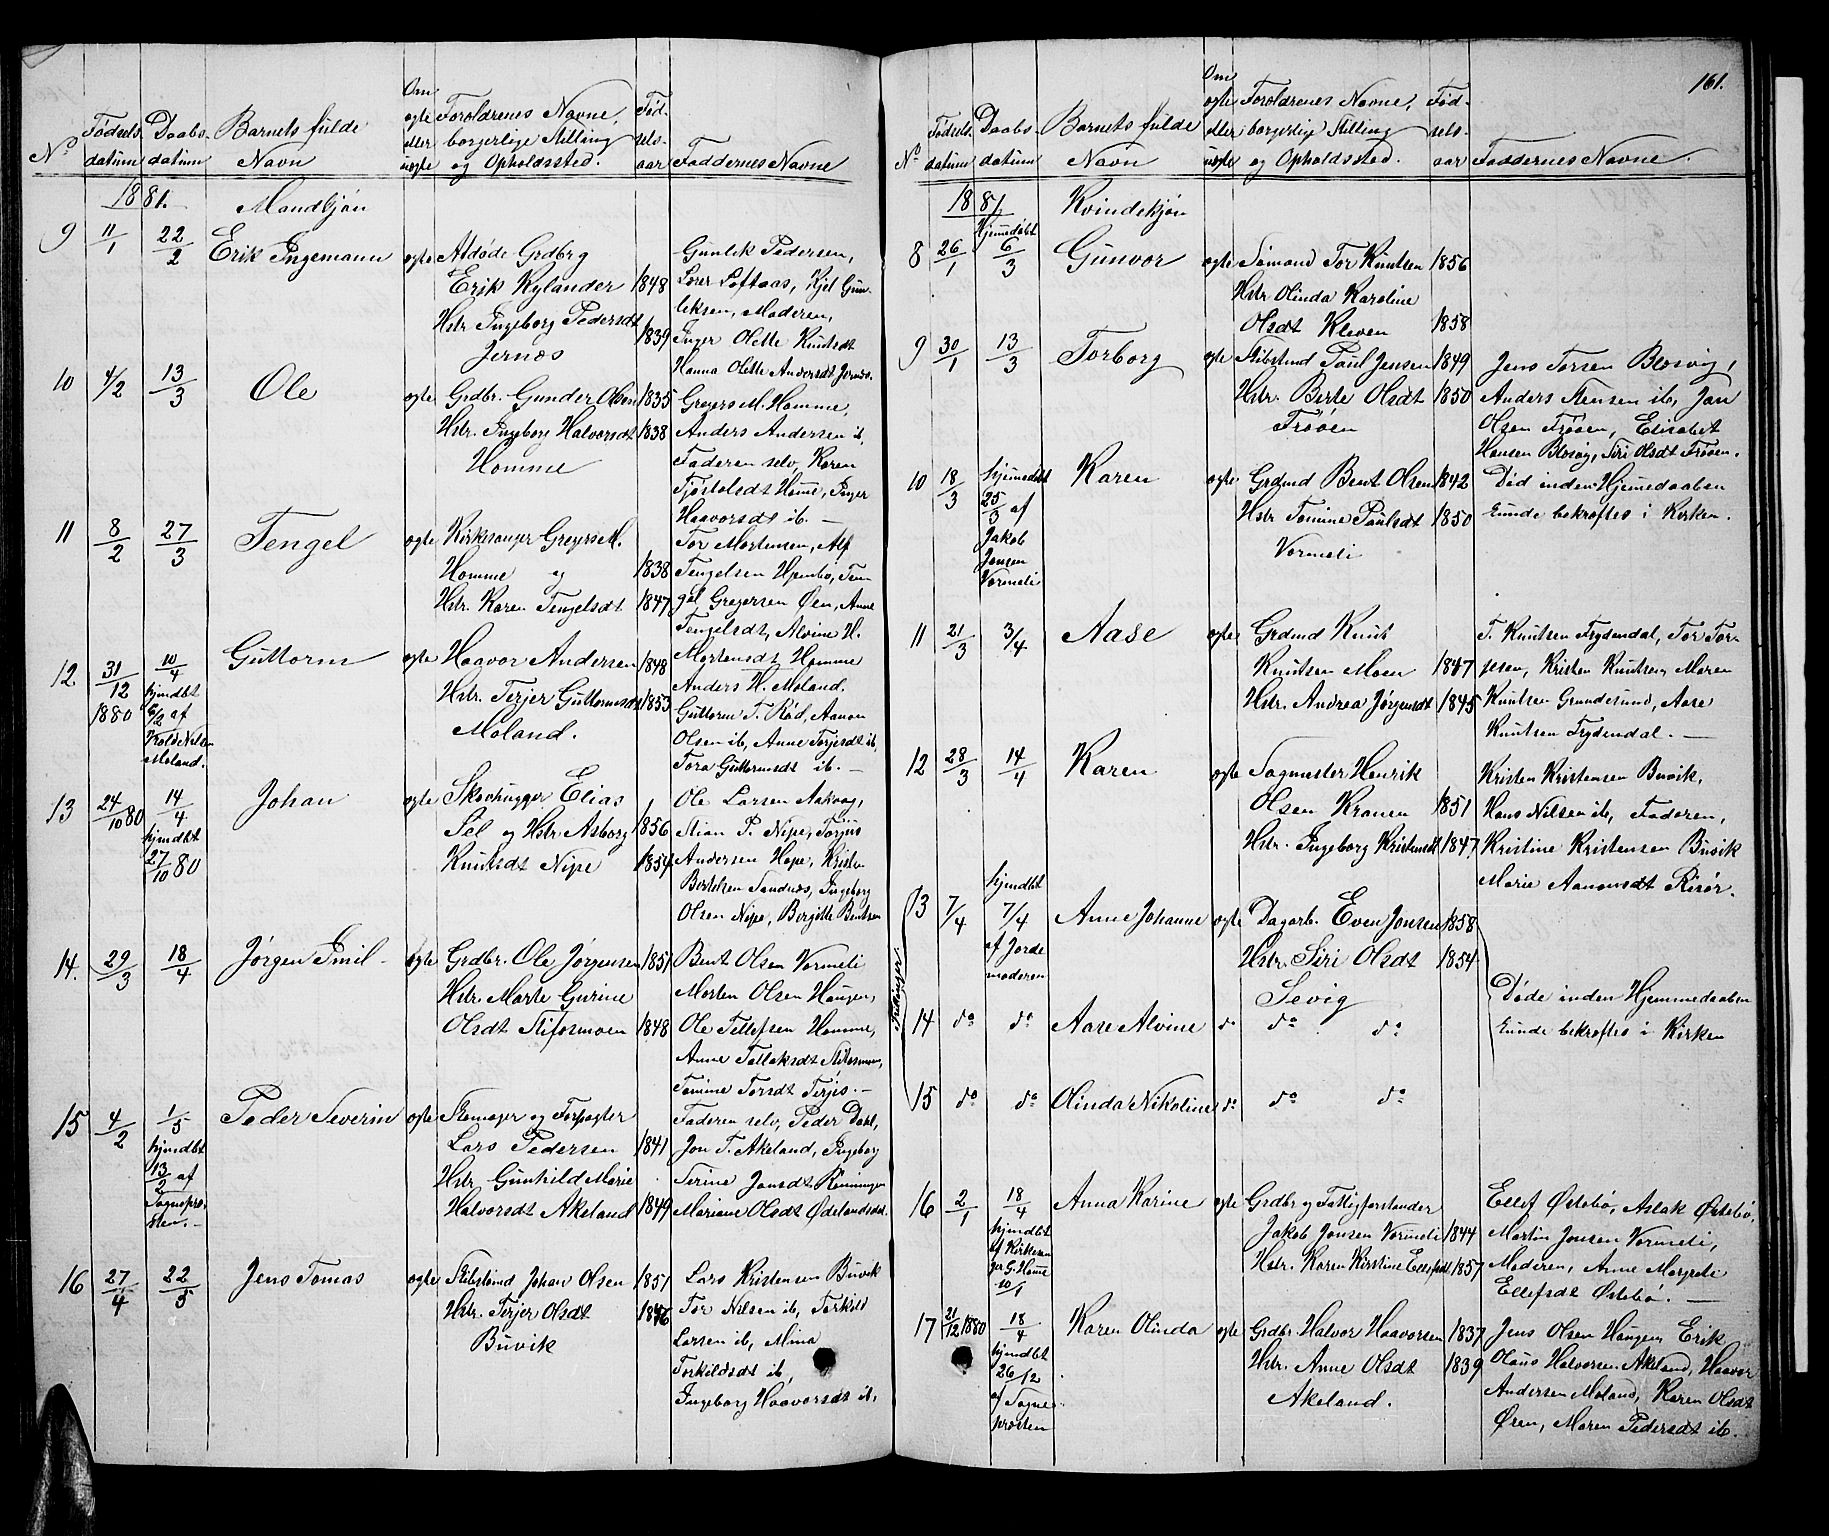 No
Fødsels-
datum
Daabs-
datum
Barnets fulde
Navn
Om
ægte
eller
uægte
Forældrenes Navne,
borgerlige Stilling
og Opholdssted.
Fød-
sels-
aar
Faddernes Navne
1881. Mandkjøn
9 11/1 22/2 Erik Ingemann ægte Afdøde Grdbrg
Erik Rylander 1848
Hstr. Ingeborg Pedersdt 1839
Jernæs
Gunlek Pedersen,
Lars Loftaas, Kjel Gun-
leksen, Moderen,
Inger Olette Knutsdt
Hanna Olette Andersdt Jernæs.
10 4/2 13/3 Ole ægte Grdbr. Gunder Olsen 1835
Hstr. Ingebor Halvorsdt 1838
Homme
Greyers M. Homme,
Anders Andersen ib,
Faderen selv, Karen
Tjøstolsdt Home, Inger
Haavorsdt ib. —
11 8/2 27/3 Tengel ægte Kirkesanger Greyers M.
Homme og 1838
Hstr. Karen Tengelsdt 1847
Tor Mortensen, Alf
Tengelsen Hjembø, Ten
gel Gregersen Øen, Anne
Tengelsdt, Alvine H.
Mortensdt Homme
12 31/12 1880 10/4 hjmdbt 6/2 af
Nilsen
Moland.
Guttorm ægte Haavor Andersen 1848
Hstr. Terjer Guttormsdt 1853
Moland.
Anders H. Moland.
Guttorm T. Rød, Aanon
Olsen ib, Anne Terjesdt ib,
Tora Guttormsdt ib. —
13 24/10 80 14/4 hjmdbt 27/10 80
Johan ægte Skovhugger Elias
Sel og Hstr. Asborg 1856
Knutsdt Nipe 1854
Ole Larsen Aakvag,
Stian P. Nipe, Torjus
Andersen Hope, Kristen
Bertelsen Sandnæs, Ingeborg
Olsen Nipe, Bergitte Bentsen
14. 29/3 18/4 Jørgen Emil ægte Grdbr. Ole Jørgensen 1851
Hstr. Marte Gurine
Olsdt Stifosmoen 1848
Bent Olsen Vormeli
Morten Olsen Haugen,
Ole Tellefsen Homme,
Anne Tallaksdt Stifosmoen,
Tomine Torsdt Terjes. —
15 4/2 1/5 hjmdbt 13/2 af
Sognepro-
sten. —
Peder Severin ægte Skomager og Forpagter
Lars Pedersen 1841
Hstr Gunhild Marie
Halvorsdt Akeland 1849
Faderen selv, Peder Dahl,
Jon T. Akeland, Ingeborg
Serine Jonsdt Rønningen
Mariane Olsdt Ødelandsdal.
16 27/4 22/5 Jens Tomas ægte Skibstmd Johan Olsen 1851
Hstr. Terjer Olsdt 1846
Buvik
Lars Kristensen Buvik
Tor Nilsen ib, Torkild
Larsen ib, Mina
Torkildsdt ib,
Ingeborg Haavorsdt ib.
161.
No
Fødsels-
datum
Daabs-
datum
Barnets fulde
Navn
Om
ægte
eller
uægte
Forældrenes Navne,
borgerlige Stilling
og Opholdssted.
Fød-
sels-
aar
Faddernes Navne.
1881 Kvindekjøn
8 26/1 Hjemdøbt 6/3 Gunvor ægte Sømand Tor Knutsen 1856
Hstr Olinda Karoline
Olsdt Kleven 1858
9 30/1 13/3 Torborg ægte Skibstmd Paul Jensen 1849
Hstr. Berte Olsdt 1850
Frøøen
Jens Torsen Blosvig,
Anders Stensen ib, Jan
Olsen Frøøen, Elisabet
Hansen Blosvig, Siri Olsdt Frøøen.
10 18/3 hjemedøbt
25/3 af
Jakob
Jensen
Vormeli
Karen ægte Grdmd Bent Olsen 1842
Hstr Tomine Paulsdt 1850
Vormeli
Død inden Hjemedaaben
kunde bekræftes i Kirken.
11 21/3 3/4 Aase ægte Grdmd Knut
Knutsen Moen 1847
Hstr. Andrea Jørgensdt 1845
T. Knutsen Frydendal, Tor Tor-
jesen, Kristen Knutsen, Maren
Knutsen Grundesund, Aase
Knutsen Frydendal. —
12 28/3 14/4 Karen ægte Sagmester Henrik
Olsen Kranen 1851
Hstr. Ingeborg Kristensdt 1847
Kristen Kristensen Buvik,
Hans Nilsen ib, Faderen,
Kristine Kristensen Buvik
Marie Aanonsdt Risør.
Trillinger
13 7/4 hjmdbt 7/4
af Jorde
moderen
Anne Johanne ægte Dagarb. Even Jonsen 1858
Hstr. Siri Olsdt 1854
Sevig
14 do do Aase Alvine do do do
Døde inden Hjemmedaaben
kunde bekræftes i Kirken
15 do do Olinda Nikoline do do do
16 2/1 18/4 hjmdbt
af Kirkesan
ger G. Homme
10/1
Anna Karine ægte Grdbr og Fattigforstander
Jakob Jonsen Vormeli 1844
Hstr. Karen Kirstine Ellefsdt 1857
Ellef Østebø, Aslak Østebø,
Martin Jonsen Vormeli,
Moderen, Anne Margrete
Ellefsdt Østebø. —
17 21/12 1880 18/4
hjmdbt
26/12
af Sogne
prosten
Karen Olinda ægte Grdbr. Halvor Haavorsen 1837
Hstr. Anne Olsdt 1839
Akeland.
Jens Olsen Haugen, Erik
Olaus Halvorsen Akeland, Haavor
Andersen Moland, Karen Olsdt
Øren, Maren Pedersdt ib.